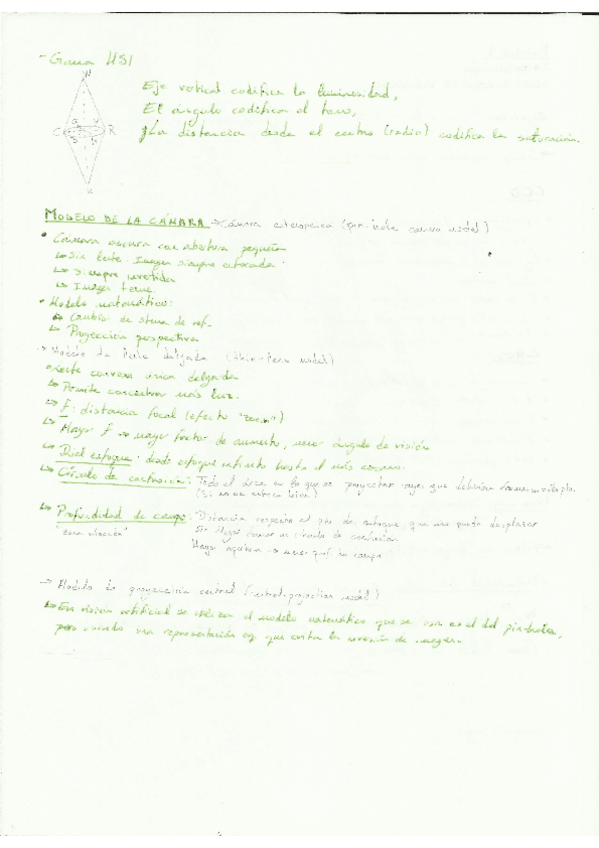 - Gama HSI
Eje vertical codifica la luminosidad,
El ángulo codifica el tono,
y La distancia desde el centro (radio) codifica la saturación.
C R
MODELO DE LA CÁMARA → Cámara estenopeica (pin-hole camera model)
• Cámara oscura con abertura pequeña
↳ Sin lente. Imagen siempre enfocada
↳ Siempre invertida
↳ Imagen tenue.
• Modelo matemático:
↳ Cambio de stema de ref.
↳ Proyección perspectiva
→ Modelo de lente delgada (thin-lens model)
• Lente convexa única delgada
↳ Permite concentrar más luz.
↳ f: distancia focal (efecto "zoom")
↳ Mayor f → mayor factor de aumento, menor ángulo de visión
↳ Dial enfoque: desde enfoque infinito hasta el más cercano.
↳ Círculo de confusión: Todo el área en la que se proyectan rayos que deberían
(Si no se enfoca bien)
↳ Profundidad de campo: Distancia respecto al de enfoque que uno puede desplazar
sin llegar formar un círculo de confusión
Mayor apertura → menor prof. de campo
→ Modelo de proyección central (central-projection model)
↳ En visión artificial se utiliza el modelo matemático que se en el del pin-hole,
pero usando una representación eq. que evita la inversión de imagen.